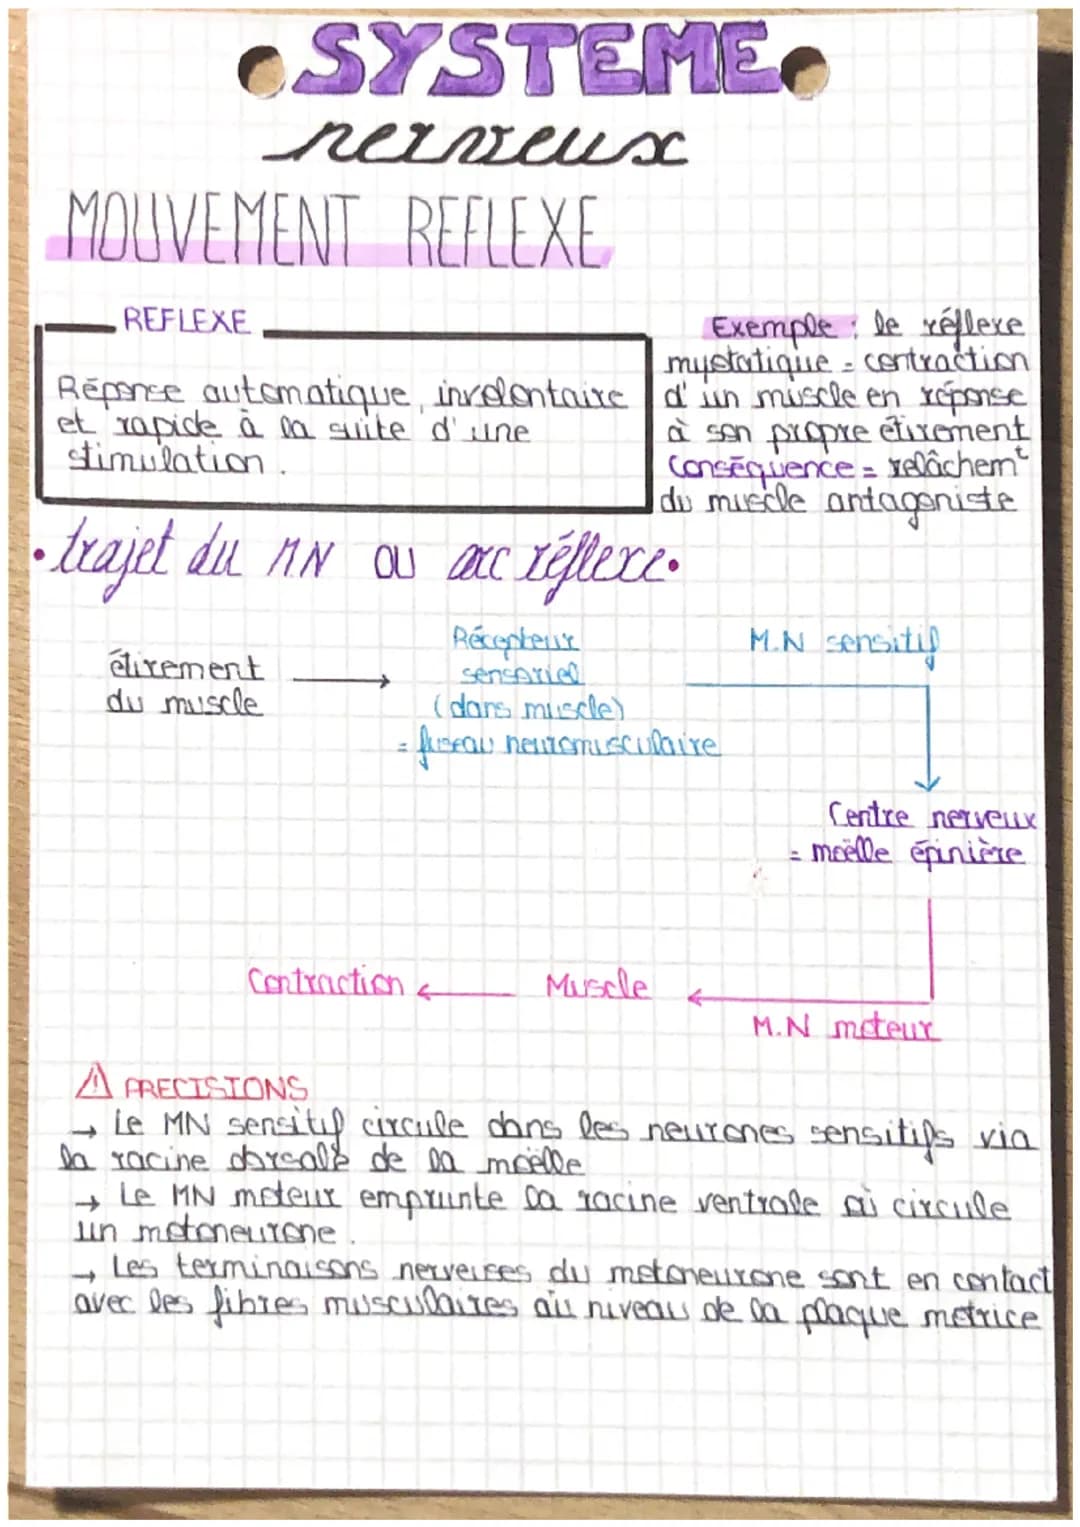 SYSTEME
nerveux
MOUVEMENT REFLEXE
REFLEXE
Réponse automatique, involontaire
et rapide à la suite d'une
stimulation.
Exemple : le réflexe
myotatique = contraction
d'un muscle en réponse
à son propre étirement
Conséquence = relâchem^t
du muscle antagoniste
• trajet du MN ou arc réflexe •
étirement
du muscle
Récepteur
sensoriel
(dans muscle)
= fuseau neuromusculaire
M.N sensitif
Centre nerveux
= moëlle épinière
Contraction ← Muscle ←
M.N moteur
⚠ PRECISIONS
→ Le MN sensitif circule dans les neurones sensitifs via
la racine dorsale de la moëlle
→ Le MN moteur emprunte la racine ventrale où circule
un motoneurone.
→ Les terminaisons nerveuses du motoneurone sont en contact
avec les fibres musculaires au niveau de la plaque motrice